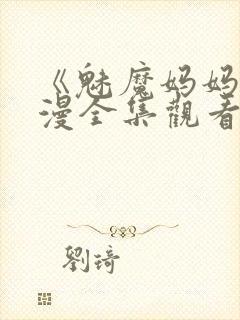 《魅魔妈妈
漫全集觀看
劉琦